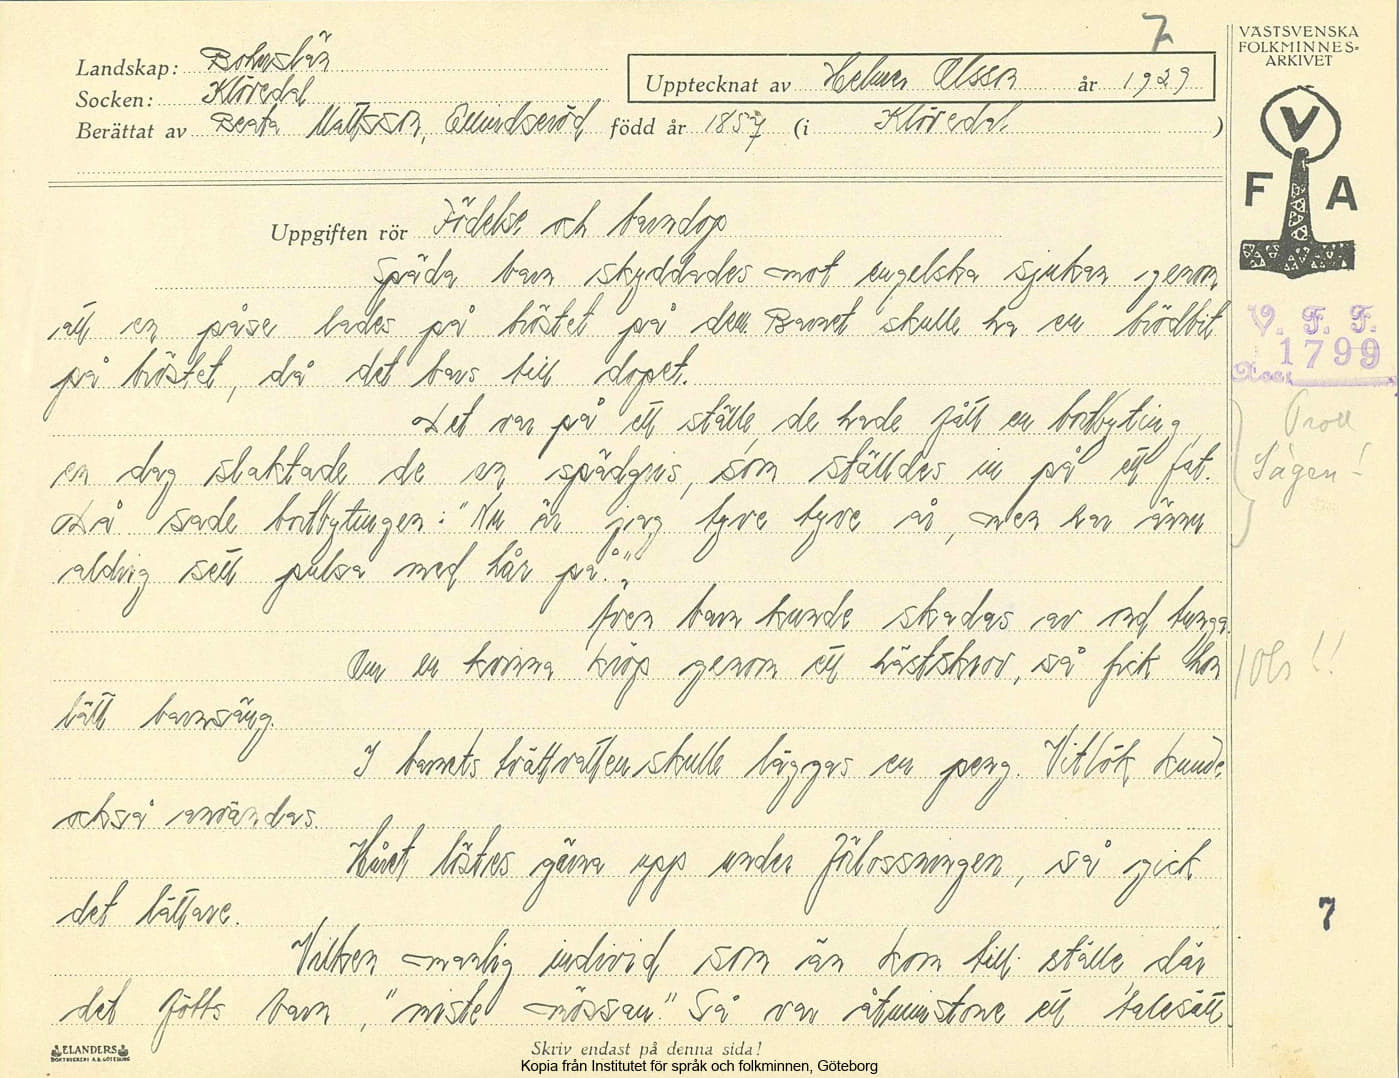 7
VÄSTSVENSKA
FOLKMINNES-
ARKIVET
Landskap: Bohuslän
Socken: Klövedal
Upptecknat av Helmer Olsson år 1929
Berättat av Beata Mattsson, född år 1857 (i Klövedal )
V
F A
Uppgiften rör Födelse och barndop
Späda barn skyddades mot engelska sjukan genom
att en påse lades på bröstet på dem. Barnet skulle ha en brödbit
på bröstet, då det bars till dopet.
V. F. F.
Acc. 1799
Det var på ett ställe, de hade fått en bortbyting,
en dag slaktade de en spädgris, som ställdes in på ett fat.
Då sade bortbytingen: "Nu är jag tyve tyve år, men har ännu
aldrig sett pulsa med hår på."
Troll
Sägen!
Även barn kunde skadas av ond tunga.
Om en kvinna kröp genom ett hästskrov, så fick hon
lätt barnsäng.
Obs!!
I barnets tvättvatten skulle läggas en peng. Vitlök kunde
också användas.
Håret löstes gärna upp under förlossningen, så gick
det lättare.
Vilken manlig individ som än kom till ställe där
det fötts barn, "miste mössan." Så var åtminstone ett talesätt
7
ELANDERS
BOKTRYCKERI A.B. GÖTEBORG
Skriv endast på denna sida!
Kopia från Institutet för språk och folkminnen, Göteborg